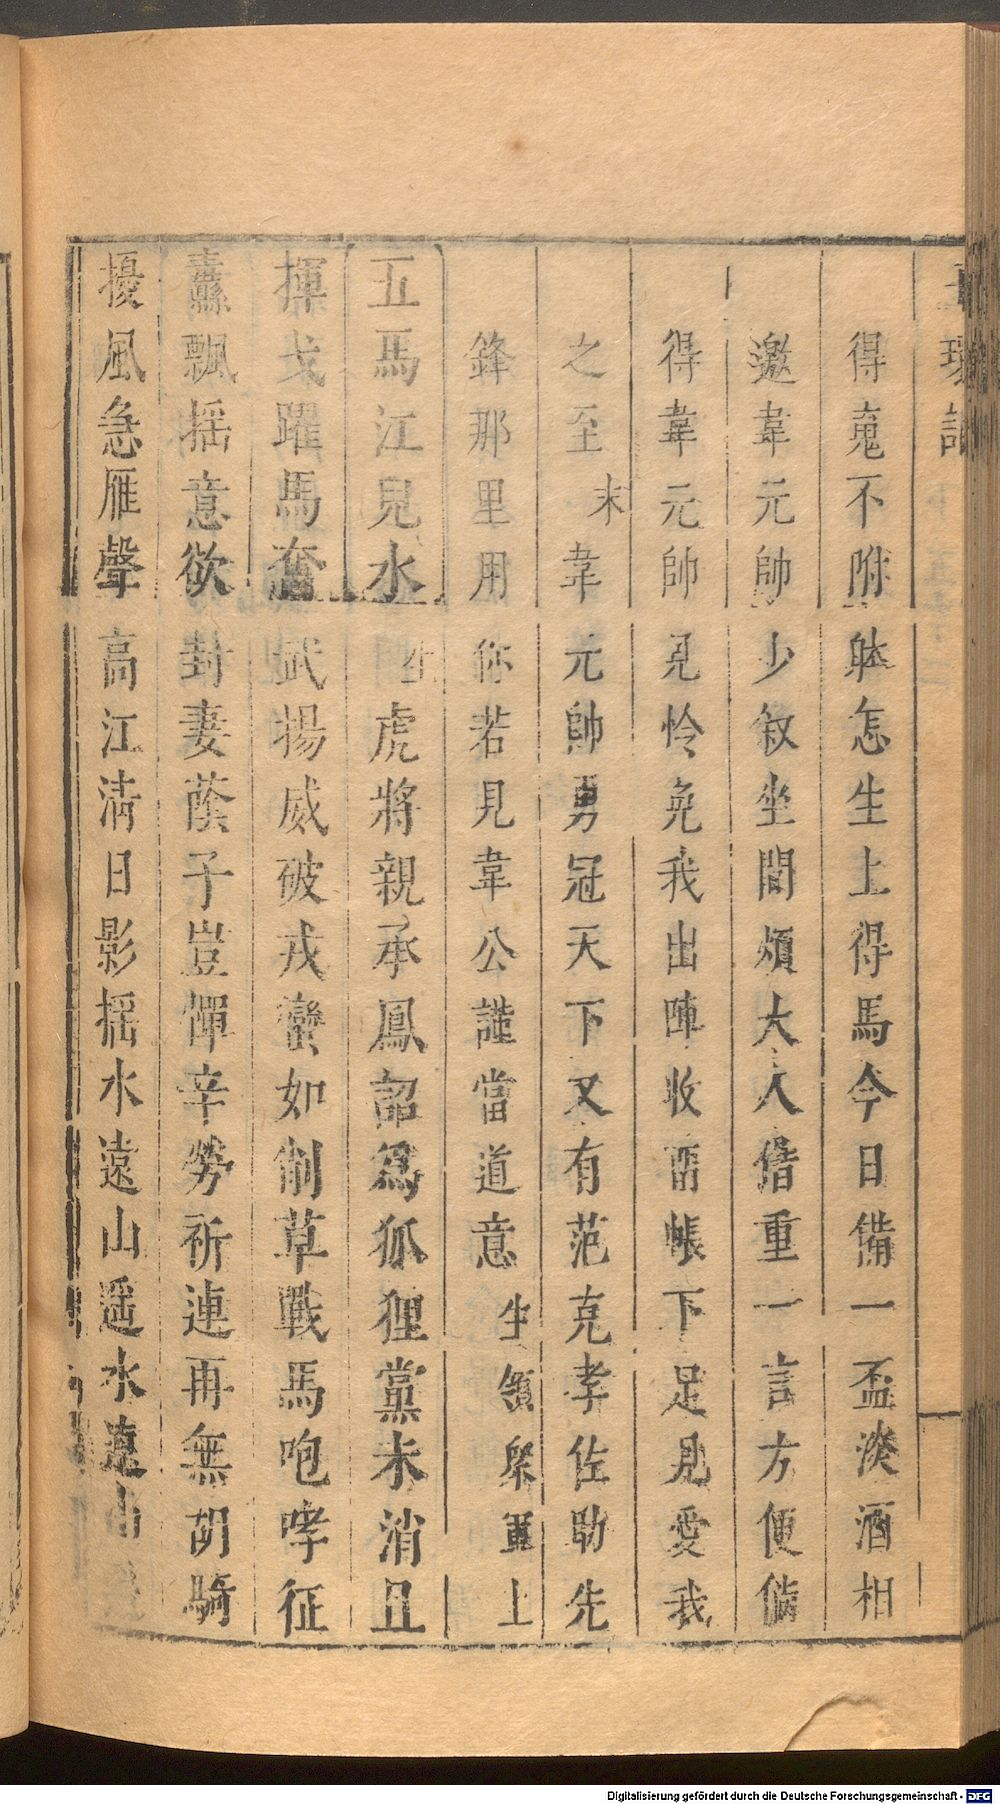 玉環記
得䰟不附躰怎生上得馬今日備一盃淡酒相
邀韋元帥少叙坐間煩大人借重一言方便倘
得韋元帥見怜免我出陣收留帳下足見愛我
之至末韋元帥勇冠天下又有范克孝佐助先
鋒那里用你若見韋公謹當道意生領衆軍上
五馬江兒水生虎將親承鳳詔為狐狸黨未消且
揮戈躍馬奮武揚威破戎蠻如制草戰馬咆哮征
纛飄摇意欲封妻蔭子豈憚辛勞祈連再無胡騎
擾風急雁聲高江清日影摇水遠山遥水遠山
Digitalisierung gefördert durch die Deutsche Forschungsgemeinschaft - DFG